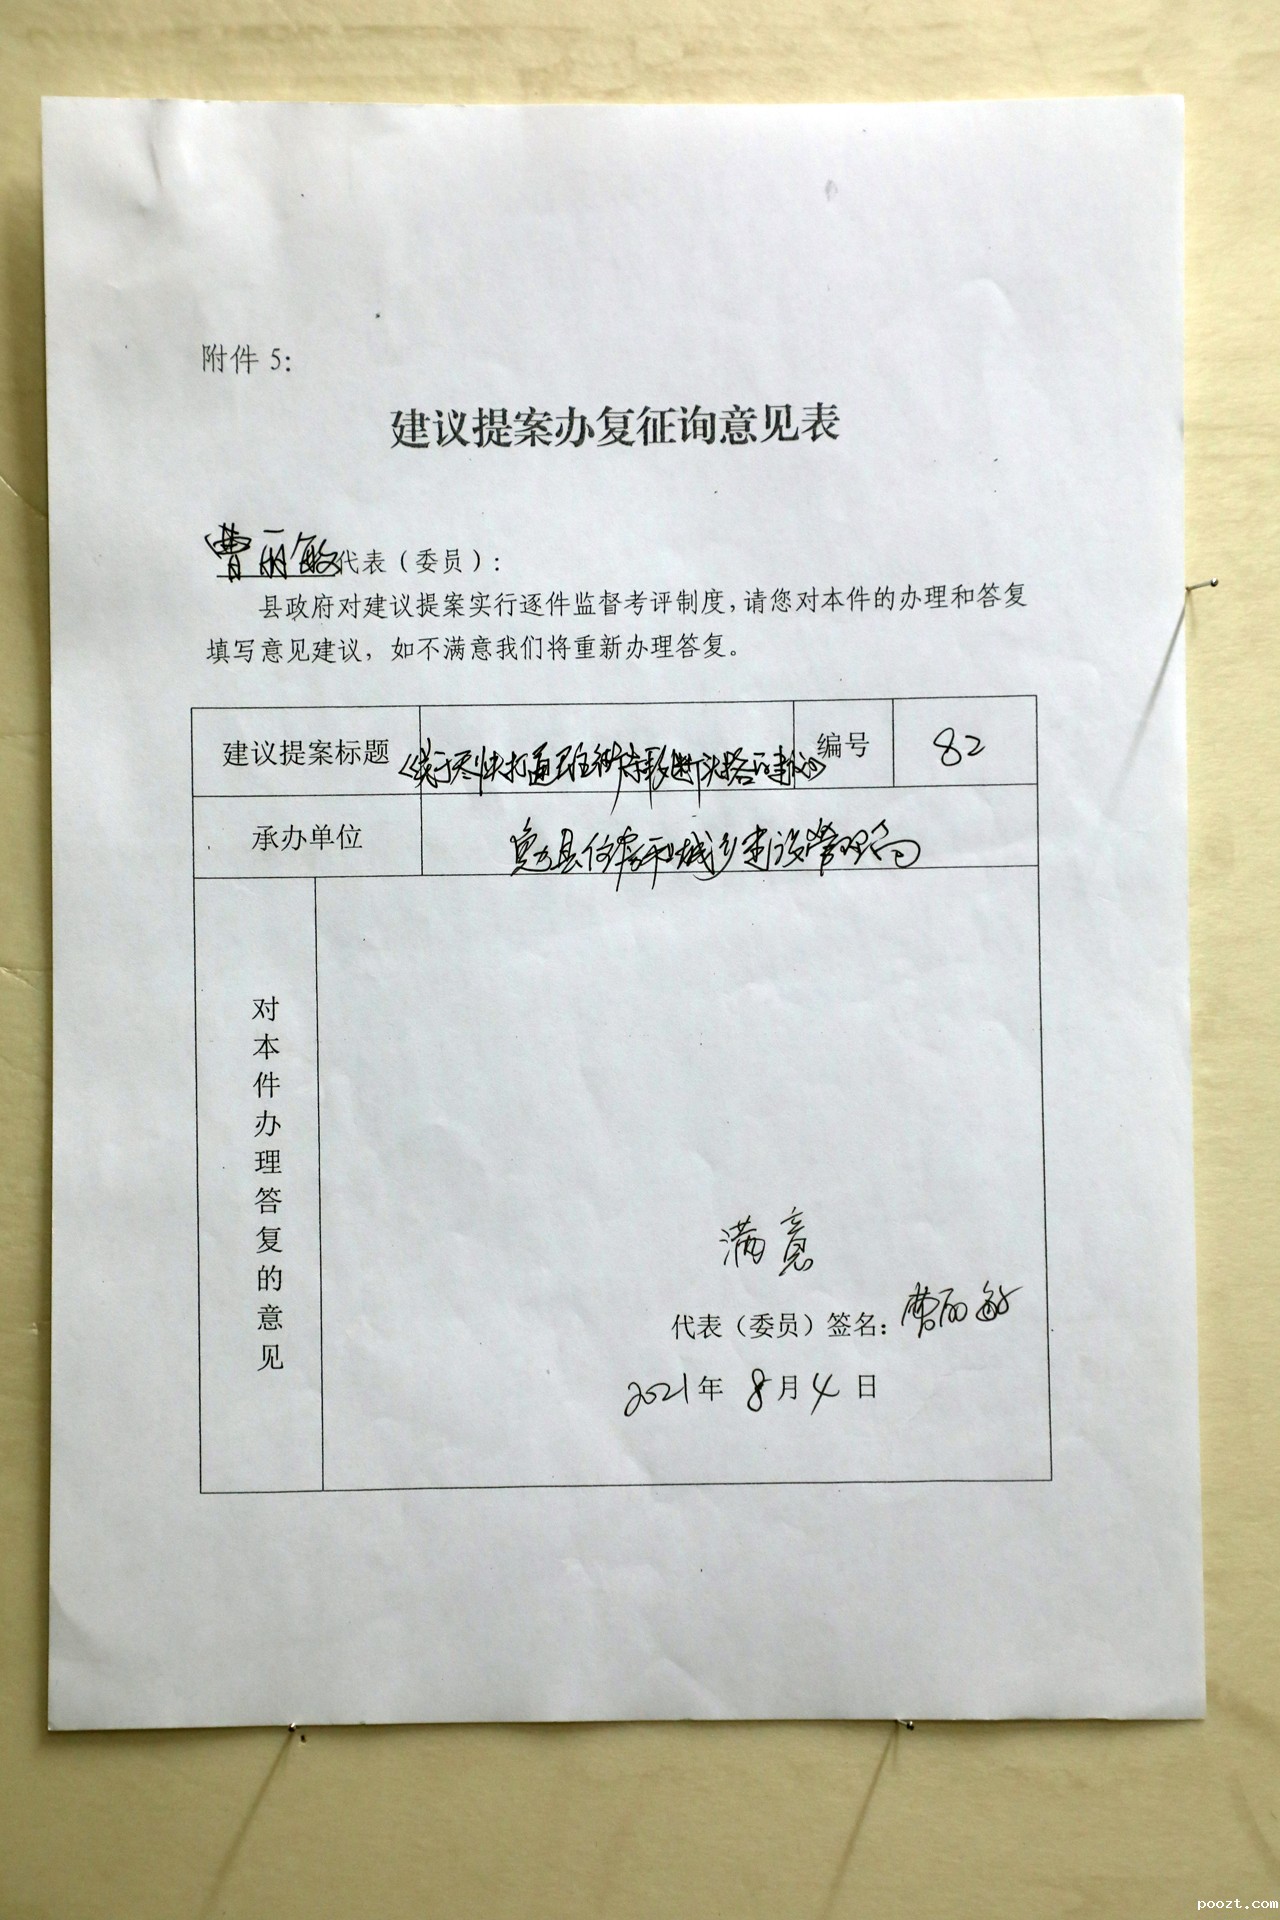 附件 5:
建议提案办复征询意见表
曹丽敏代表（委员）:
县政府对建议提案实行逐件监督考评制度,请您对本件的办理和答复
填写意见建议，如不满意我们将重新办理答复。
建议提案标题
《关于尽快打通断头路的建议》
编号
82
承办单位
县住房和城乡建设管理局
对本件办理答复的意见
满意
代表（委员）签名: 曹丽敏
2021年 8月4日
poozt.com